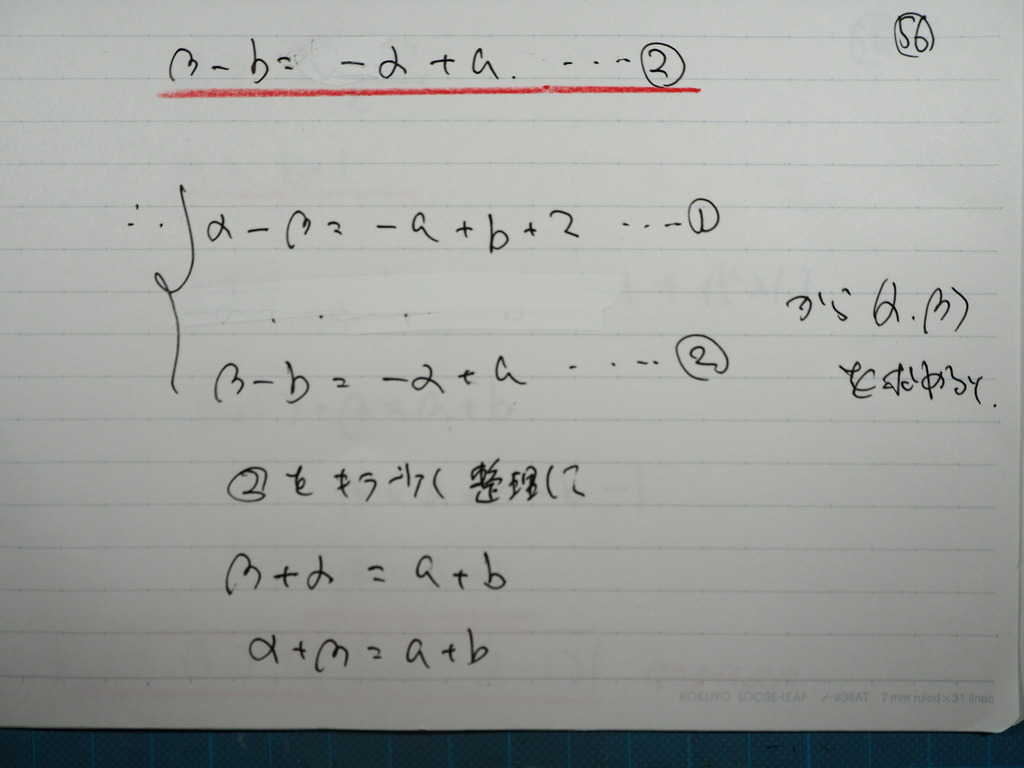 56
β-b= -α+a. ・・・・②
∴ { α-β= -a+b+2 ・・・・①
β-b= -α+a ・・・・②
から (α.β)
を求めると.
②をもう少し整理して
β+α = a+b
α+β=a+b
KOKUYO LOOSE-LEAF ノ-836AT 7 mm ruled×31 lines